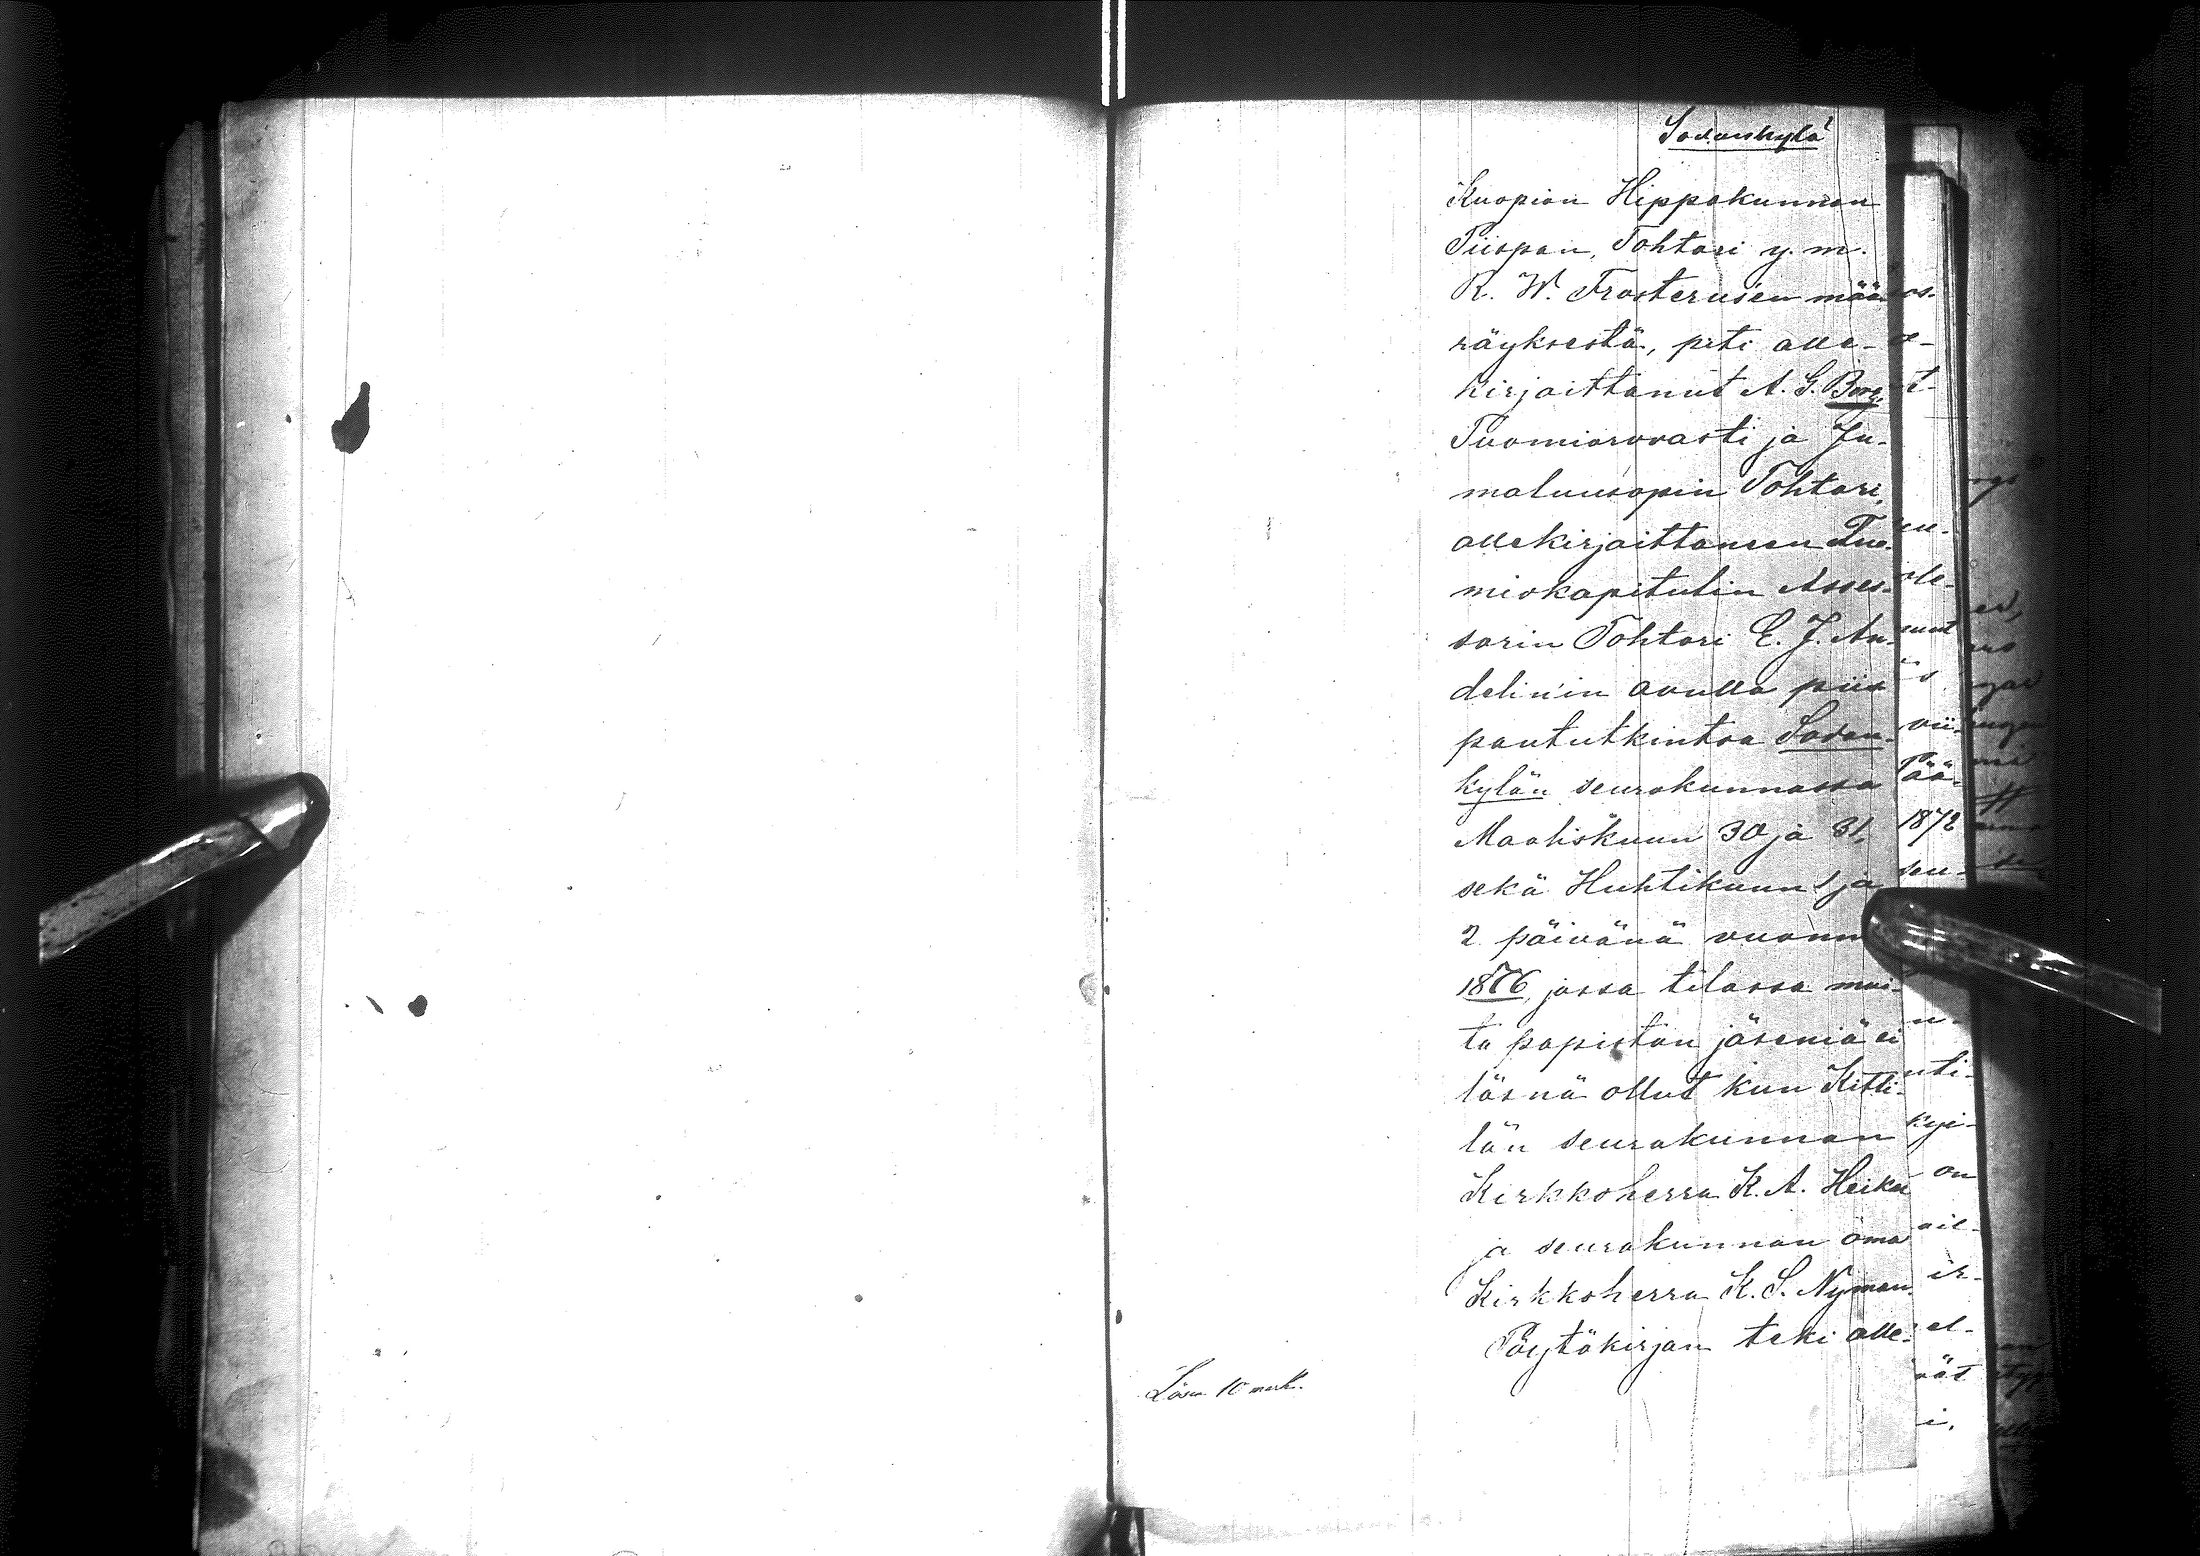 Sodankylä
Kuopion Hippakunnan
Piispan, Tohtori y. m.
R. W. Frosterus'en mää-
räyksestä, piti alle-
kirjoittanut A. G. Borg,
Tuomiorovasti ja Ju-
maluusopin Tohtori,
allekirjoittaneen Tuo-
miokapitulin Asses-
sorin Tohtori E. J. An-
delin'in avulla piis-
pantutkintoa Sodan-
kylän seurakunnassa
Maaliskuun 30 ja 31,
sekä Huhtikuun 1 ja
2 päivänä vuonn
1876, jossa tilassa mui-
ta papiston jäseniä ei
läsnä ollut kun Kitti-
län seurakunnan
Kirkkoherra K. A. Heikel
ja seurakunnan oma
Kirkkoherra K. S. Nyman.
Pöytäkirjan teki alle-
Lösen 10 mark.
1872